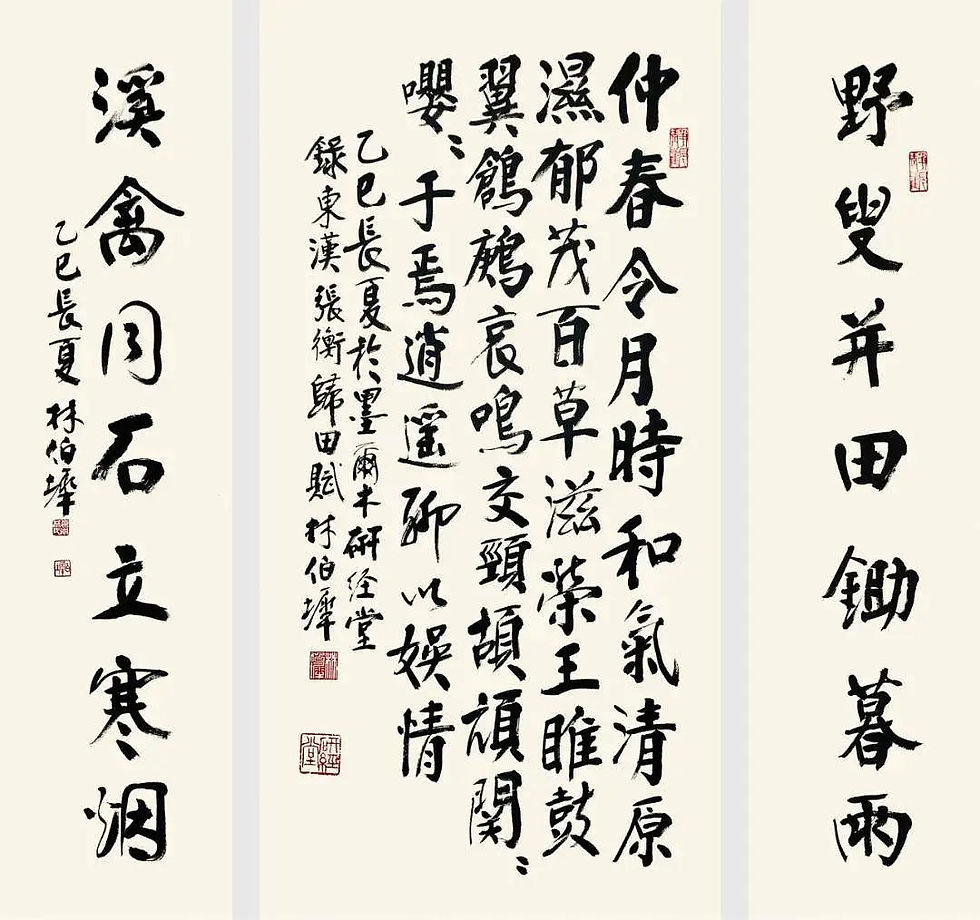 野叟并田鋤暮雨
仲春令月時和氣清原
濕郁茂百草滋榮王雎鼓
翼鶬鶊哀鳴交頸頡頏関〻
嚶〻于焉逍遥聊以娛情
乙巳長夏於墨爾本研经堂
錄東漢張衡歸田賦 林伯墀
研經堂
溪禽同石立寒烟
乙巳長夏 林伯墀